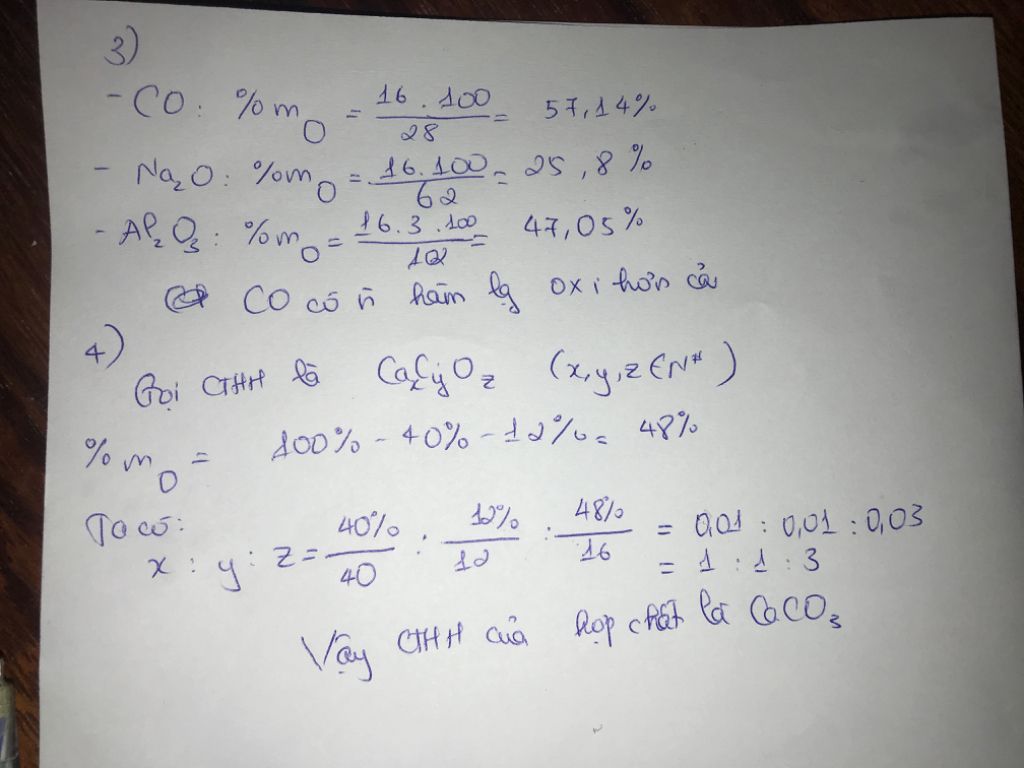 3)
- CO: %m O = 16.100 / 28 = 57,14%
- Na₂O: %m O = 16.100 / 62 = 25,8%
- Al₂O₃: %m O = 16.3.100 / 102 = 47,05%
CO có ñ hàm lg oxi hơn cả
4)
Gọi CTHH là CaxCyOz (x,y,z ∈ N*)
%m O = 100% - 40% - 12% = 48%
Ta có:
x : y : z = 40% / 40 : 12% / 12 : 48% / 16 = 0,01 : 0,01 : 0,03
= 1 : 1 : 3
Vậy CTHH của hợp chất là CaCO₃